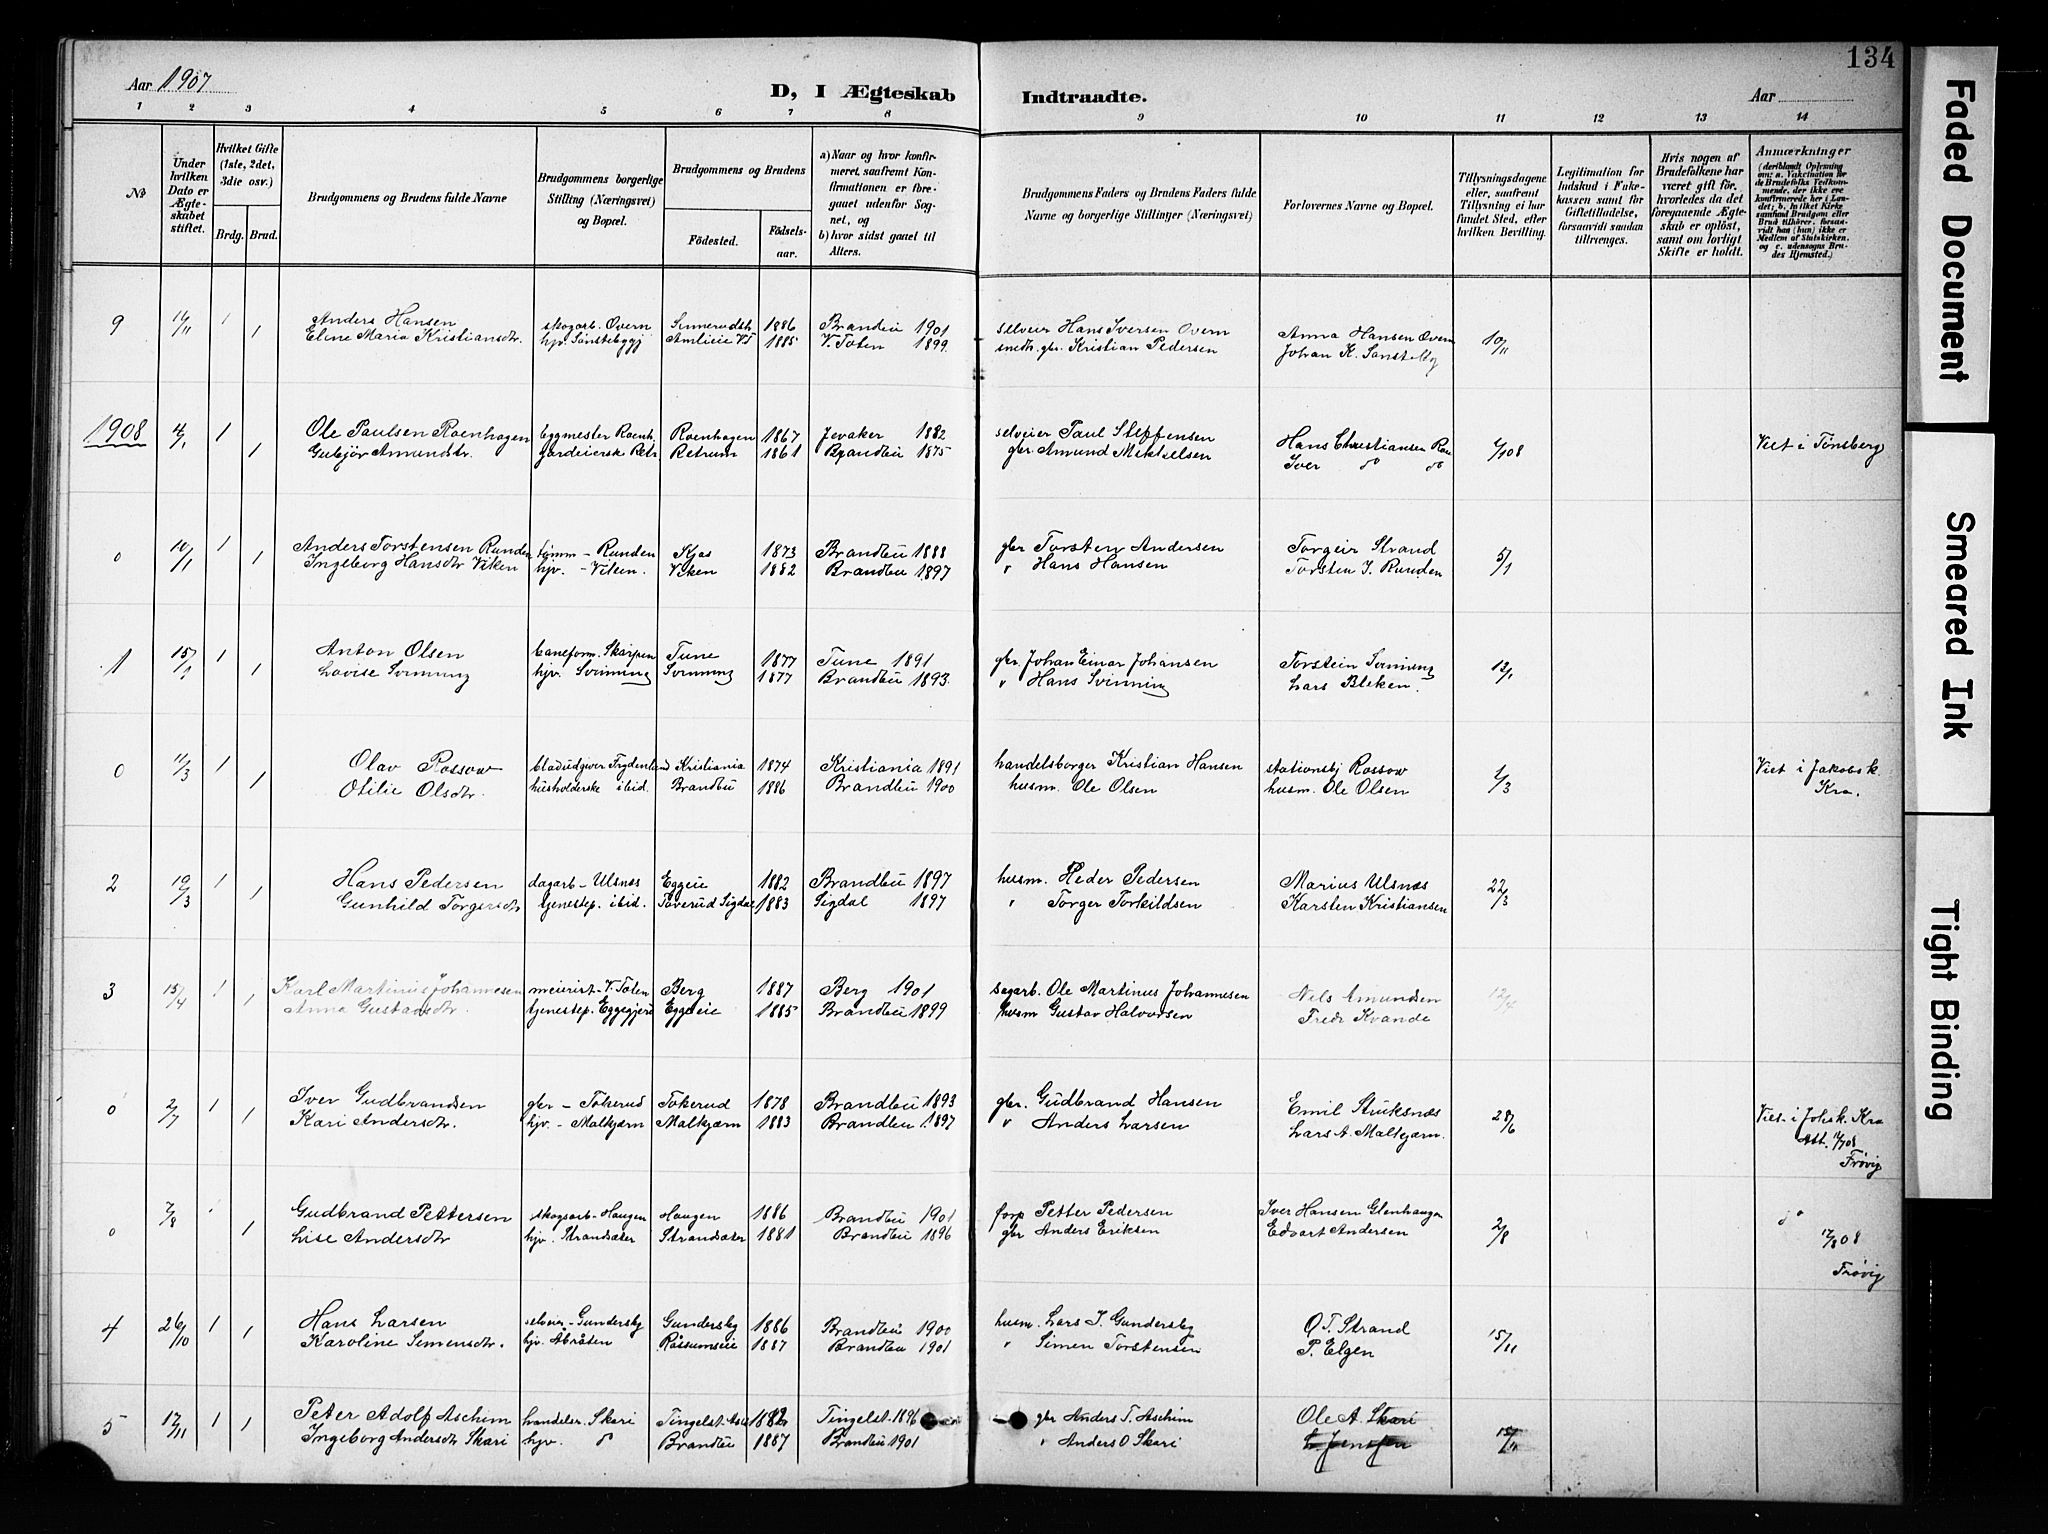 134
Aar 1907
D, I Ægteskab Indtraadte.
Aar
1 2 3 4 5 6 7 8 9 10 11 12 13 14
No
Under hvilken Dato er Ægteskabet stiftet.
Hvilket Gifte (1ste, 2det, 3die osv.)
Brdg. Brud.
Brudgommens og Brudens fulde Navne
Brudgommens borgerlige Stilling (Næringsvei) og Bopæl.
Brudgommens og Brudens
Födested. Födselsaar.
a) Naar og hvor konfirmeret, saafremt Konfirmationen er foregaaet udenfor Sognet, og
b) hvor sidst gaaet til Alters.
Brudgommens Faders og Brudens Faders fulde Navne og borgerlige Stillinger (Næringsvei)
Forlovernes Navne og Bopæl.
Tillysningsdagene eller, saafremt Tillysning ei har fundet Sted, efter hvilken Bevilling.
Legitimation for Indskud i Fakekassen samt for Giftetilladelse, forsaavidt saadan tiltrænges.
Hvis nogen af Brudefolkene har været gift för, hvorledes da det foregaaende Ægteskab er oplöst, samt om lovligt Skifte er holdt.
Anmærkninger (deriblandt Oplysning om: a. Vakcination for de Brudefolks Vedkommende, der ikke ere konfirmerede her i Landet; b. hvilket Kirkesamfund Brudgom eller Brud tilhörer, forsaavidt han (hun) ikke er Medlem af Statskirken, og c. udensogns Brudes Hjemsted.)
9 14/11 1 Anders Hansen skogarb. Overn 1886 Brandbu 1901 selveier Hans Iversen Overn Anna Hansen Overn 10/11
1 Eline Maria Kristiansdtr. hjv. 1885 V. Toten 1899 gbr. Kristian Pedersen Johan K.
1908 4/1 1 Ole Paulsen Roenhagen bygmester Roenh. Roenhagen 1867 Jevaker 1882 selveier Paul Steffensen Hans Christiansen 08 Viet i Tønsberg
1 Gubjör Amundsdtr. Retrum 1861 Brandbu 1875 gbr. Amund Mikkelsen Iver do do
0 10/1 1 Anders Torstensen Runden tømm - Runden Kjos 1873 Brandbu 1888 gbr Torsten Andersen Torgeir Strand 5/1
1 Ingeborg Hansdtr Viken hjv. - Viken. Viken 1882 Brandbu 1897 " Hans Hansen Torsten J. Runden
1 15/1 1 Anton Olsen baneform. Skarpen Tune 1877 Tune 1891 gbr. Johan Einar Johansen Torstein Svinning 12/1
1 Lovise Svinning hjv. Svinning Svinning 1877 Brandbu 1893. " Hans Svinning Lars Bleken.
0 11/3 1 Olav Rossow bladudgiver Frydenlund Kristiania 1874 Kristiania 1891 handelsborger Kristian Hansen stationsbj Rossow 1/3 Viet i Jakobs k.
1 Otilie Olsdtr. husholderske ibid. Brandbu 1886 Brandbu 1900 husm. Ole Olsen husm. Ole Olsen Kra.
2 19/3 1 Hans Pedersen dagarb - Ulsnes Eggeie 1882 Brandbu 1897 husm. Peder Pedersen Marius Ulsnæs 22/3
1 Gunhild Torgersdtr tjenestep. ibid. Toverud Sigdal 1883 Sigdal 1897 " Torger Torkildsen Karsten Kristiansen
3 15/4 1 Karl Martinius Johannesen meierist - V. Toten Berg 1887 Berg 1901 sagarb. Ole Martinus Johannesen Nels Amundsen 12/4
1 Anna Gustavsdtr. tjenestep. Eggegjerd Eggeie 1885 Brandbu 1899 husm Gustav Halvorsen Fredr Kvande
0 2/7 1 Iver Gudbrandsen gbr - Tokerud Tokerud 1878 Brandbu 1893 gbr. Gudbrand Hansen Emil Struksnæs 28/6 Viet i Johsk. Kra
1 Kari Andersdtr. hjv. - Malkjærn Malkjærn 1883 Brandbu 1897 " Anders Larsen Lars A. Malkjærn. Att. 17/7 08
Frøvig
0 7/8 1 Gudbrand Pettersen skogsarb - Haugen Haugen 1886 Brandbu 1901 forp Petter Pedersen Iver Hansen Glenhaugen 2/8 do
1 Lise Andersdtr hjv. Strandsæter Strandsæter 1881 Brandbu 1896 gbr Anders Eriksen Edvart Andersen 17/8 08
Frøvig
4 26/10 1 Hans Larsen selveier - Gundersby Gundersby 1886 Brandbu 1900 husm. Lars J. Gundersby O. T. Strand 15/11
1 Karoline Simensdtr. hjv. Åbråten Råssumseie 1887 Brandbu 1901 " Simen Torstensen P. Elgen
5 17/11 1 Peter Adolf Aschim handelsr. Skari Tingelst. 1882 Tingelst. 1896 gbr Anders T. Aschim Ole A. Skari 15/11
1 Ingeborg Andersdtr Skari hjv. do Brandbu 1887 Brandbu 1901 " Anders O Skari L Jensen
Faded Document
Smeared Ink
Tight Binding